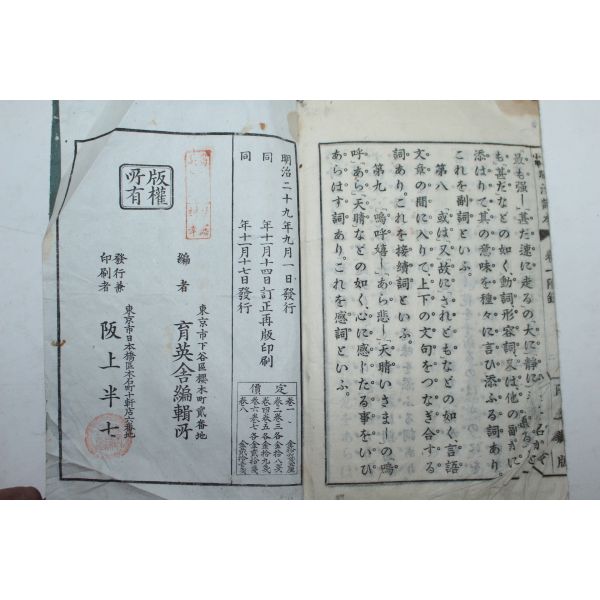 最も強し「甚だ速に走るの大に静に
も甚だなどの如く、動詞、形容詞、又は他の副詞に
添はりて其の意味を種々に言ひ添ふる詞あり。
これを副詞といふ。
第八 或は「又」故に「されどもなどの如く、言語
文章の間に入りて、上下の文句をつなぎ合する
詞あり。これを接續詞といふ。
第九 嗚呼嬉し「あら悲し「天晴いさましの嗚
呼「あら「天晴などの如く心に感じたる事をいひ
あらはす詞あり。これを感詞といふ。
明治二十九年九月一日發行
同 年十一月十四日訂正再版印刷
同 年十一月十七日發行
定價
卷一
卷二卷三各金拾八錢
卷四卷五各金拾九錢
卷六卷七各金貳拾錢
卷八
東京市下谷區櫻木町貳番地
編者 育英舎編輯所
東京市日本橋區本石町十軒店六番地
發行兼印刷者 阪上半七
版權所有